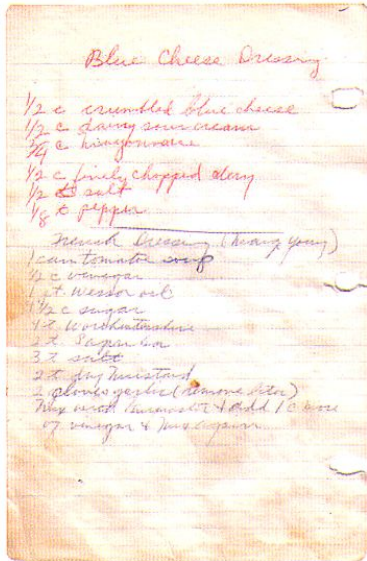 Blue Cheese Dressing
1/2 c crumbled blue cheese
1/2 c dairy sour cream
3/4 c mayonnaise
1/2 c finely chopped celery
1/2 t salt
1/8 t pepper
French Dressing (
1 can tomato soup
1/2 c vinegar
1 Wesson oil
1 1/2 c sugar
4 t
2 t
3 t salt
2 t dry Mustard
2 cloves garlic (remove later)
Mix & add 1 c more
of vinegar & mix again